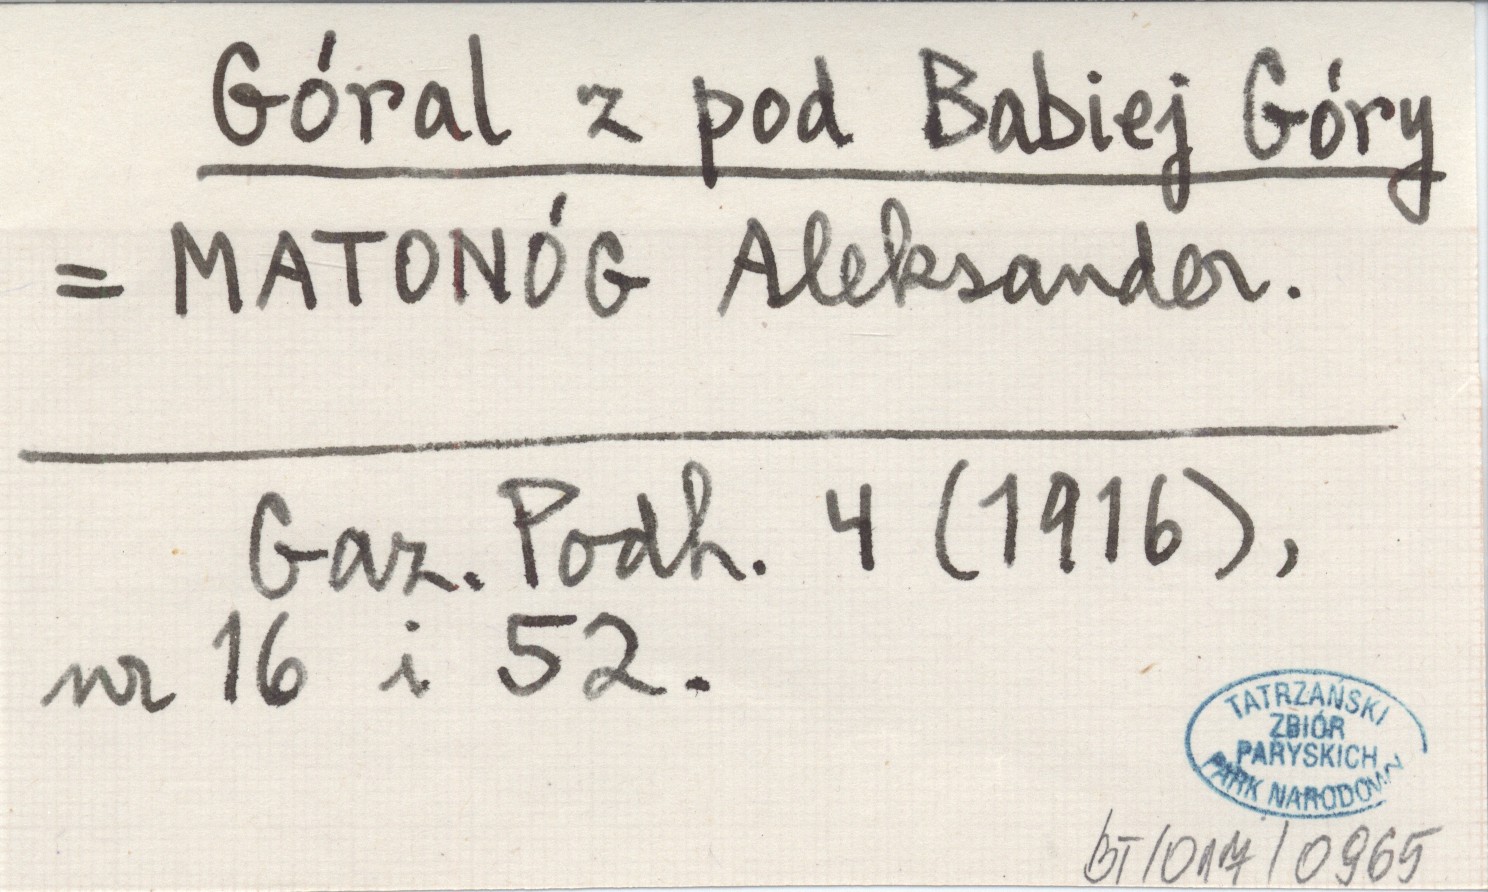 Góral z pod Babiej Góry
= MATONÓG Aleksander.
Gaz. Podh. 4 (1916),
nr 16 i 52.
TATRZAŃSKI
ZBIÓR
PARYSKICH
PARK NARODOWY
BT/017/0965